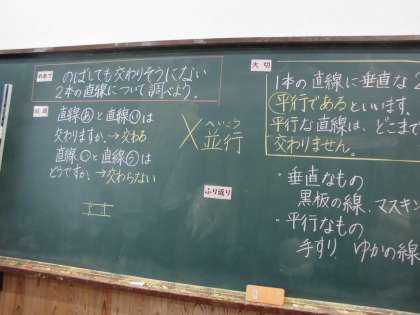 めあて
のばしても交わりそうにない
2本の直線について調べよう。
問題
直線あと直線いは
交わりますか。→交わる
直線うと直線えは
どうですか。→交わらない
×並行
へいこう
ふり返り
大切
1本の直線に垂直な2
平行であるといいます。
平行な直線は、どこまで
交わりません。
・垂直なもの
黒板の線、マスキン
・平行なもの
手すり ゆかの線